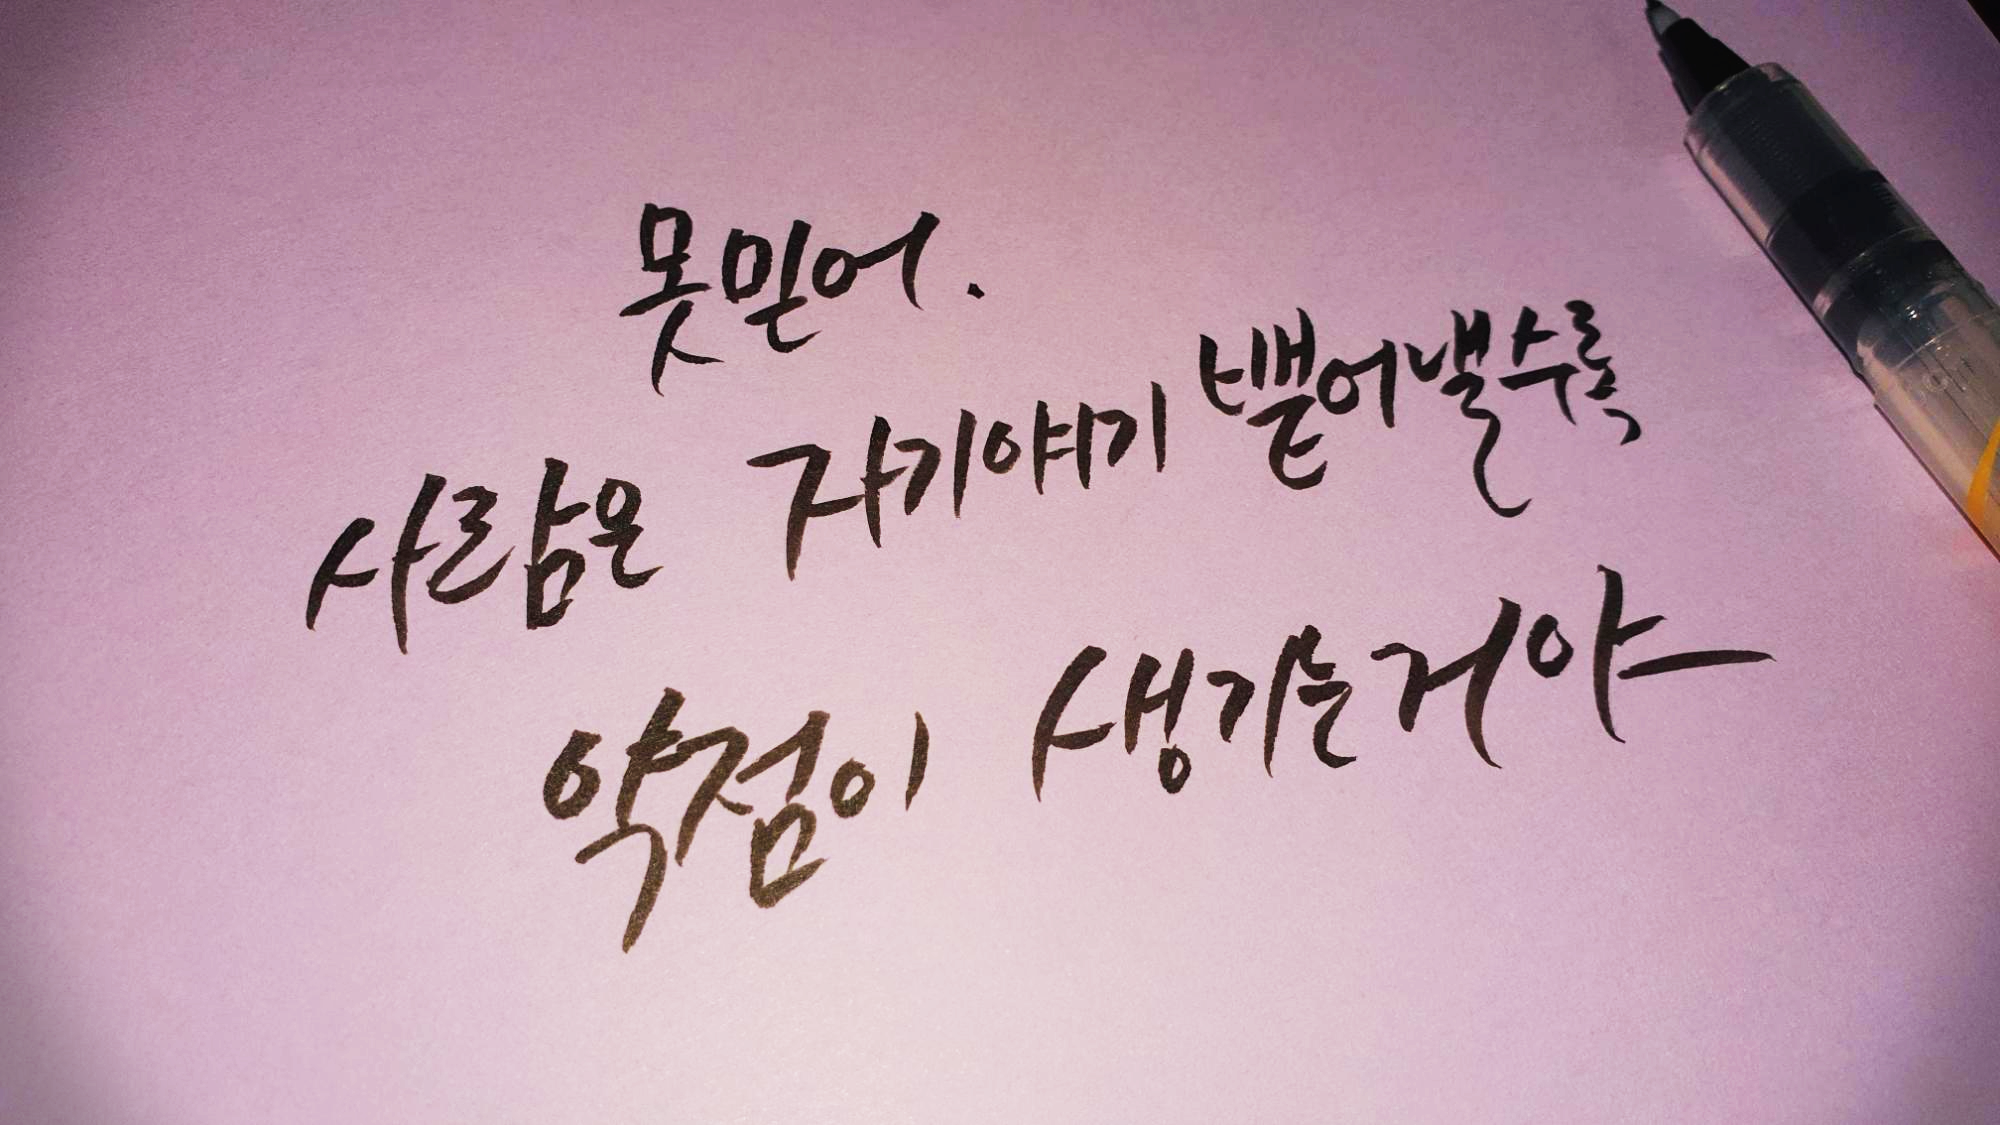 못믿어.
사람은 자기얘기 뱉어낼수록
약점이 생기는거야